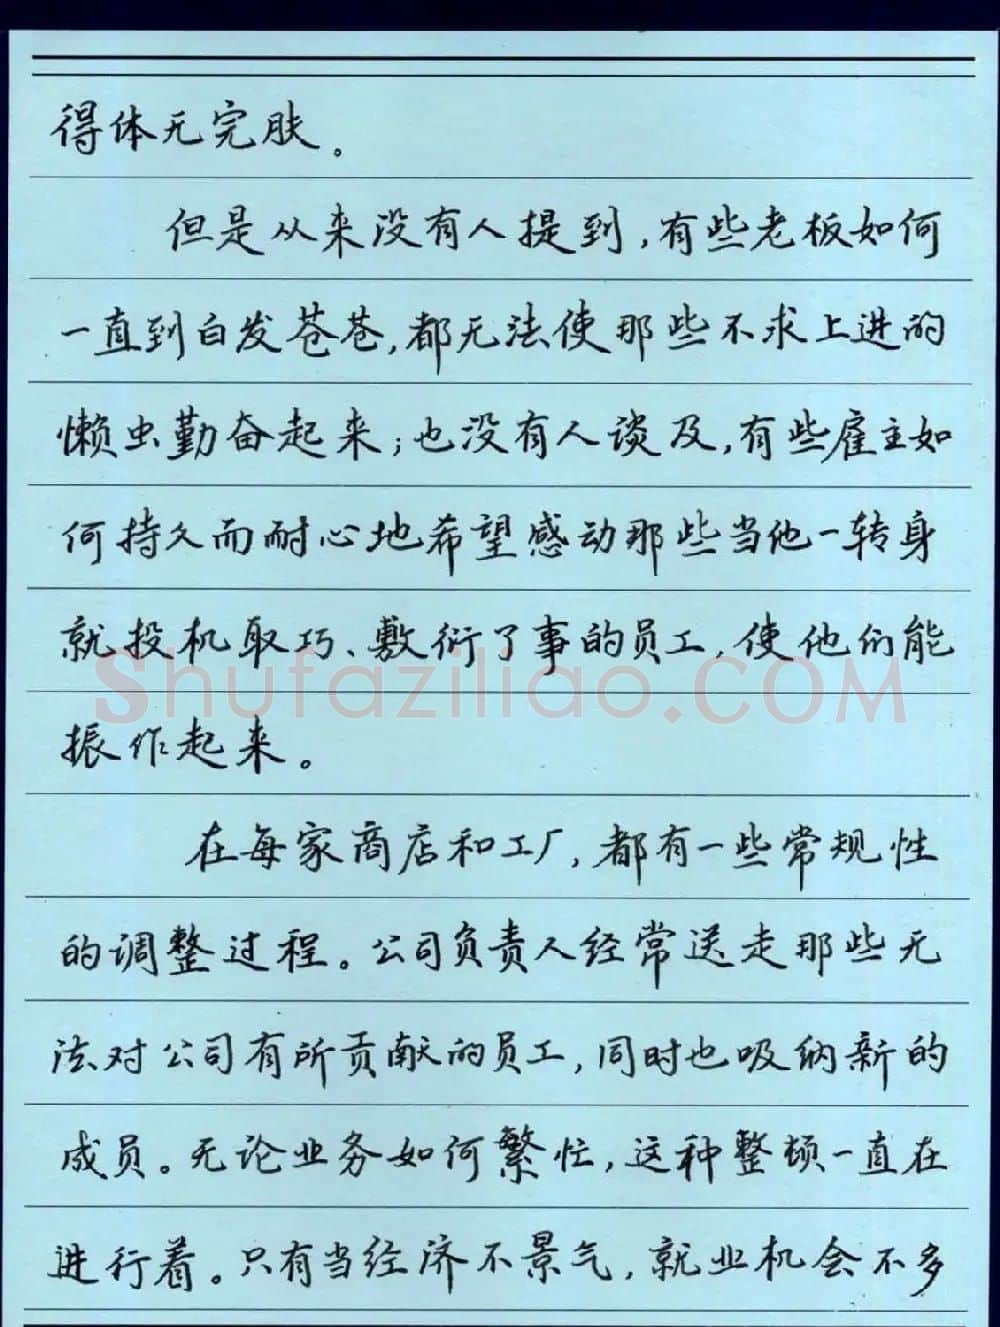 得体无完肤。
但是从来没有人提到，有些老板如何
一直到白发苍苍，都无法使那些不求上进的
懒虫勤奋起来；也没有人谈及，有些雇主如
何持久而耐心地希望感动那些当他一转身
就投机取巧、敷衍了事的员工，使他们能
Shufaziliao.COM
振作起来。
在每家商店和工厂，都有一些常规性
的调整过程。公司负责人经常送走那些无
法对公司有所贡献的员工，同时也吸纳新的
成员。无论业务如何繁忙，这种整顿一直在
进行着。只有当经济不景气，就业机会不多